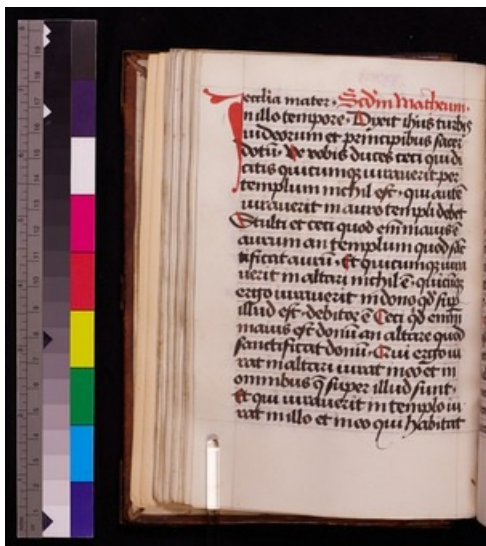 ecclia mater · Scdm Matheum ·
In illo tempore · Dixit ihus turbis
iudeorum et principibus sacer
dotū · Ve vobis duces ceci qui di
citis quicumq iuraverit per
templum nichil est · qui autē
iuraverit in auro templi debet
Stulti et ceci quod em maius ē
aurum an templum quod sāc
tificat aurū · Et quicumq iura
verit in altari nichil ē · quicūq
ergo iuraverit in dono qd sup
illud est · debitor ē Ceci qd enim
maius est donū an altare quod
sanctificat donū · Qui ergo iu
rat in altari iurat in eo et in
omnibus q super illud sunt ·
Et qui iuraverit in templo iu
rat in illo et in eo qui habitat